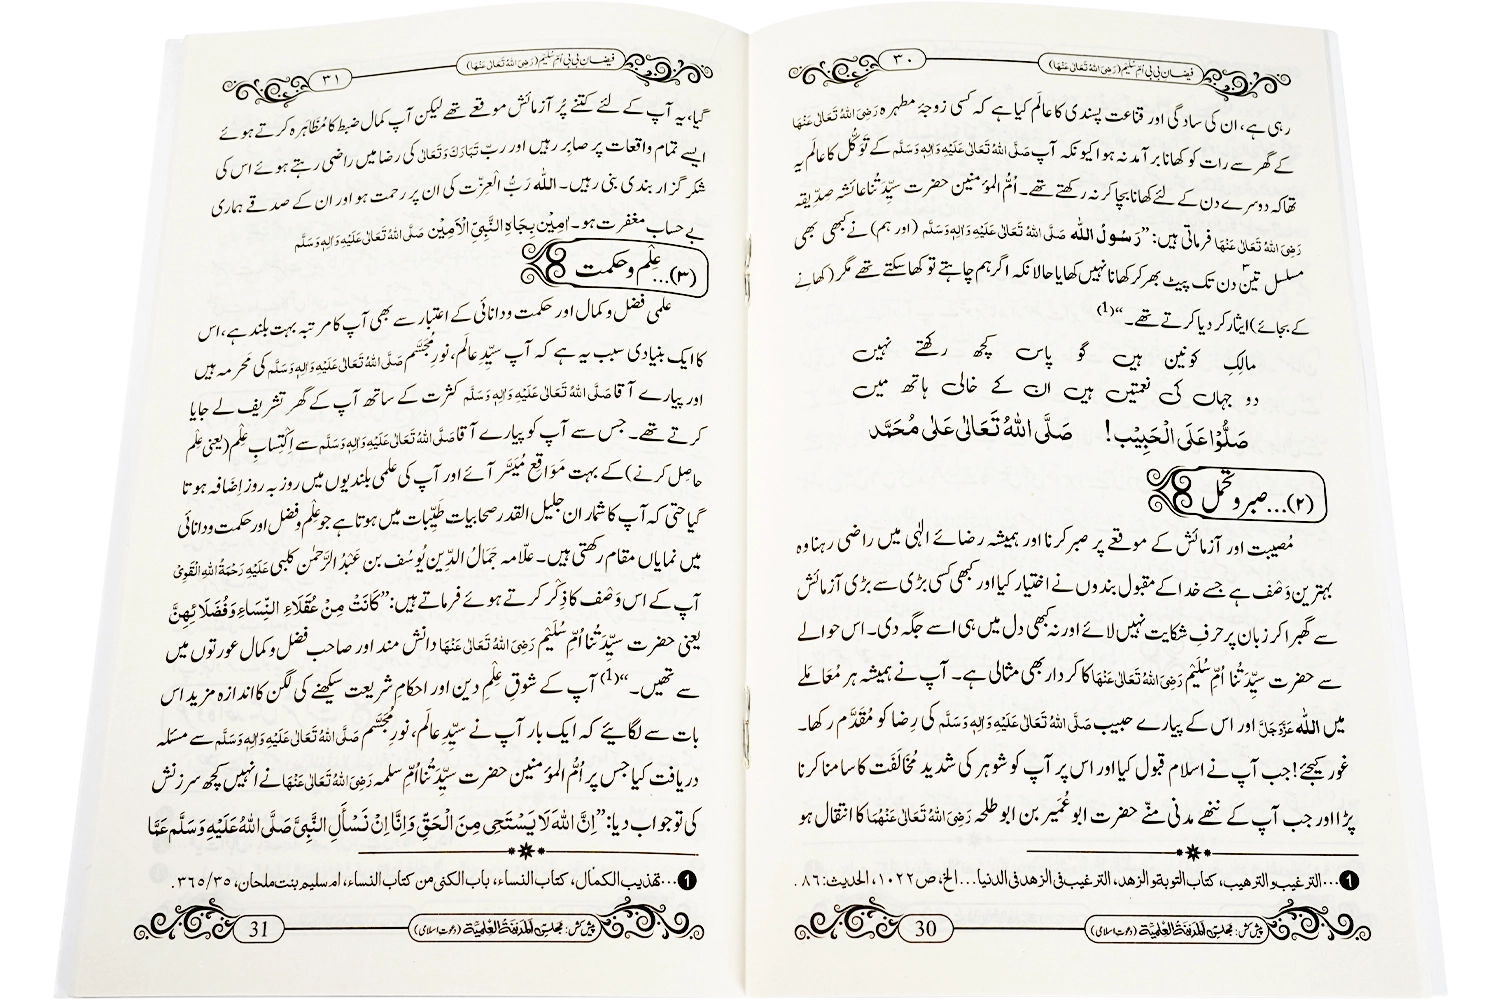 فیضانِ بی بی اُمِّ سُلَیْم (رَضِیَ اللہُ تَعَالٰی عَنْہَا)
٣٠
رہی ہے، ان کی سادگی اور قناعت پسندی کا عالَم کیا ہے کہ کسی زوجۂ مطہرہ رَضِیَ اللہُ تَعَالٰی عَنْہَا
کے گھر سے رات کو کھانا برآمد نہ ہوا کیونکہ آپ صَلَّی اللہُ تَعَالٰی عَلَیْہِ وَاٰلِہٖ وَسَلَّم کے توَکُّل کا عالَم یہ
تھا کہ دوسرے دن کے لئے کھانا بچا کر نہ رکھتے تھے۔ اُمُّ المؤمنین حضرت سیِّدَتُنا عائشہ صدِّیقہ
رَضِیَ اللہُ تَعَالٰی عَنْہَا فرماتی ہیں: ”رَسُوْلُ اللہ صَلَّی اللہُ تَعَالٰی عَلَیْہِ وَاٰلِہٖ وَسَلَّم (اور ہم) نے کبھی بھی
مسلسل تین٣ دن تک پیٹ بھر کر کھانا نہیں کھایا حالانکہ اگر ہم چاہتے تو کھا سکتے تھے مگر (کھانے
کے بجائے) ایثار کر دیا کرتے تھے۔“(1)
مالِکِ کونین ہیں گو پاس کچھ رکھتے نہیں
دو جہاں کی نعمتیں ہیں ان کے خالی ہاتھ میں
صَلُّوْا عَلَی الْحَبِیْب! صَلَّی اللہُ تَعَالٰی عَلٰی مُحَمَّد
(٢)... صبر و تحمل
مُصیبت اور آزمائش کے موقعے پر صبر کرنا اور ہمیشہ رضائے الٰہی میں راضی رہنا وہ
بہترین وَصْف ہے جسے خدا کے مقبول بندوں نے اختیار کیا اور کبھی کسی بڑی سے بڑی آزمائش
سے گھبرا کر زبان پر حرفِ شکایت نہیں لائے اور نہ کبھی دل میں ہی اسے جگہ دی۔ اس حوالے
سے حضرت سیِّدَتُنا اُمِّ سُلَیْم رَضِیَ اللہُ تَعَالٰی عَنْہَا کا کردار بھی مثالی ہے۔ آپ نے ہمیشہ ہر مُعَاملے
میں اللہ عَزَّوَجَلَّ اور اس کے پیارے حبیب صَلَّی اللہُ تَعَالٰی عَلَیْہِ وَاٰلِہٖ وَسَلَّم کی رِضا کو مُقَدَّم رکھا۔
غور کیجئے! جب آپ نے اسلام قبول کیا اور اس پر آپ کو شوہر کی شدید مُخَالَفَت کا سامنا کرنا
پڑا اور جب آپ کے ننھے مدنی منّے حضرت ابو عُمَیر بن ابو طلحہ رَضِیَ اللہُ تَعَالٰی عَنْہُمَا کا انتقال ہو
1... الترغیب والترھیب، کتاب التوبۃ والزھد، الترغیب فی الزھد فی الدنیا... الخ، ص١٠٢٢، الحدیث:٨٦.
پیش کش: مجلس المدینۃ العلمیۃ (دعوتِ اسلامی)
30
فیضانِ بی بی اُمِّ سُلَیْم (رَضِیَ اللہُ تَعَالٰی عَنْہَا)
٣١
گیا، یہ آپ کے لئے کتنے پُر آزمائش موقعے تھے لیکن آپ کمال ضبط کا مُظَاہَرہ کرتے ہوئے
ایسے تمام واقعات پر صابِر رہیں اور ربّ تَبَارَکَ وَتَعَالٰی کی رضا میں راضی رہتے ہوئے اس کی
شکر گزار بندی بنی رہیں۔ اللہ رَبُّ الْعِزَّت کی ان پر رحمت ہو اور ان کے صدقے ہماری
بے حساب مغفرت ہو۔ اٰمِیْن بِجَاہِ النَّبِیِّ الْاَمِیْن صَلَّی اللہُ تَعَالٰی عَلَیْہِ وَاٰلِہٖ وَسَلَّم
(٣)... عِلْم و حکمت
علمی فضل و کمال اور حکمت و دانائی کے اعتبار سے بھی آپ کا مرتبہ بہت بلند ہے، اس
کا ایک بنیادی سبب یہ ہے کہ آپ سیِّدِ عالَم، نورِ مُجَسَّم صَلَّی اللہُ تَعَالٰی عَلَیْہِ وَاٰلِہٖ وَسَلَّم کی محرمہ ہیں
اور پیارے آقا صَلَّی اللہُ تَعَالٰی عَلَیْہِ وَاٰلِہٖ وَسَلَّم کثرت کے ساتھ آپ کے گھر تشریف لے جایا
کرتے تھے۔ جس سے آپ کو پیارے آقا صَلَّی اللہُ تَعَالٰی عَلَیْہِ وَاٰلِہٖ وَسَلَّم سے اِکْتِسابِ عِلْم (یعنی عِلْم
حاصِل کرنے) کے بہت مَوَاقِع مُیَسَّر آئے اور آپ کی علمی بلندیوں میں روز بہ روز اِضَافہ ہوتا
گیا حتی کہ آپ کا شمار ان جلیل القدر صحابیات طَیِّبَات میں ہوتا ہے جو عِلْم و فضل اور حکمت و دانائی
میں نمایاں مقام رکھتی ہیں۔ علّامہ جَمَالُ الدِّین یُوسُف بن عَبْدُ الرَّحْمٰن کلبی عَلَیْہِ رَحْمَۃُ اللہِ الْقَوِی
آپ کے اس وَصْف کا ذِکْر کرتے ہوئے فرماتے ہیں: ”کَانَتْ مِنْ عُقَلَاءِ النِّسَاءِ وَفُضَلَائِھِنَّ
یعنی حضرت سیِّدَتُنا اُمِّ سُلَیْم رَضِیَ اللہُ تَعَالٰی عَنْہَا دانش مند اور صاحب فضل و کمال عورتوں میں
سے تھیں۔“(1) آپ کے شوقِ عِلْمِ دین اور احکامِ شریعت سیکھنے کی لگن کا اندازہ مزید اس
بات سے لگائیے کہ ایک بار آپ نے سیِّدِ عالَم، نورِ مُجَسَّم صَلَّی اللہُ تَعَالٰی عَلَیْہِ وَاٰلِہٖ وَسَلَّم سے مسئلہ
دریافت کیا جس پر اُمُّ المؤمنین حضرت سیِّدَتُنا اُمِّ سلمہ رَضِیَ اللہُ تَعَالٰی عَنْہَا نے انہیں کچھ سرزنش
کی تو جواب دیا: ”اِنَّ اللہَ لَا یَسْتَحْیٖ مِنَ الْحَقِّ وَاِنَّا اِنْ نَسْاَلِ النَّبِیَّ صَلَّی اللہُ عَلَیْہِ وَسَلَّم عَمَّا
1... تھذیب الکمال، کتاب النساء، باب الکنی من کتاب النساء، ام سلیم بنت ملحان، ٣٥/٣٦٥.
پیش کش: مجلس المدینۃ العلمیۃ (دعوتِ اسلامی)
31